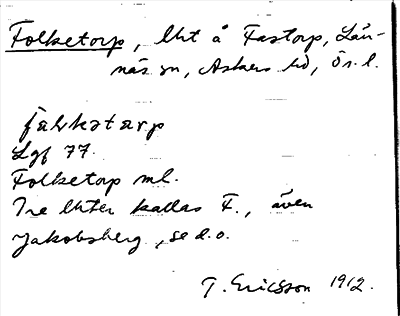 Folketorp, lht å Fastorp, Lån-
näs sn, Askers hd, Ör. l.
fa​lkətårp
Lgf 77.
Folketorp ml.
Tre lhter kallas F., även
Jakobsberg, se d.o.
T. Ericsson 1912.